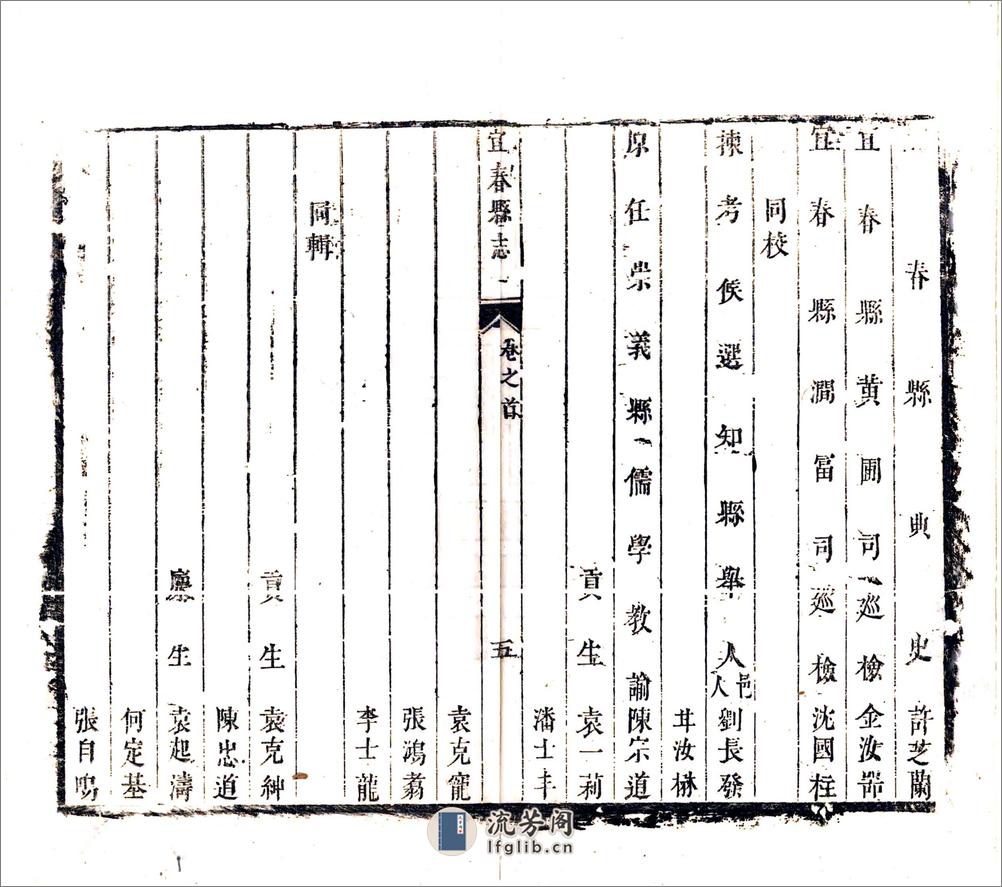 春縣典史許芝蘭
宜春縣黃圃司巡檢金汝
宜春縣澗富司巡檢沈國柱
同校
揀考候選知縣舉人邑人劉長發
汝
原任崇義縣儒學教諭陳宗道
貢生袁一莉
潘士丰
宜春縣志
卷之首
五
袁克寵
張鴻翥
李士龍
同輯
貢生袁克紳
陳忠道
廩生袁起濤
何定基
張自鳴
流芳阁
lfglib.cn